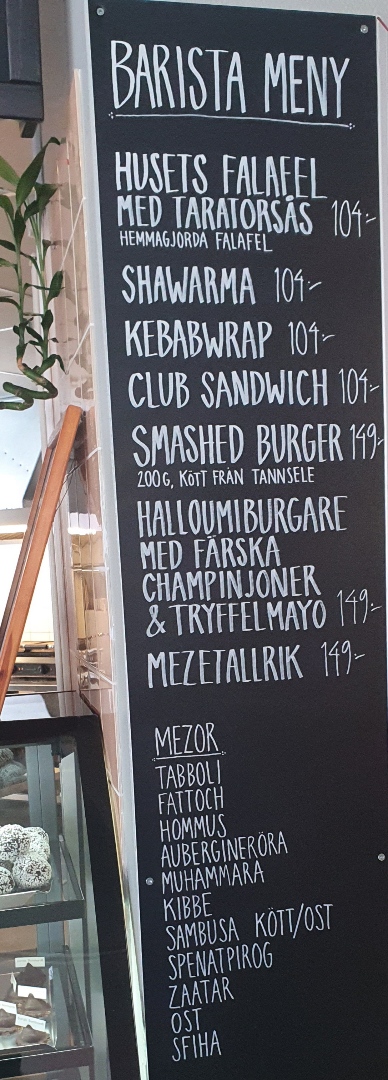 BARISTA MENY
HUSETS FALAFEL
MED TARATORSÅS 104:-
HEMMAGJORDA FALAFEL
SHAWARMA 104:-
KEBABWRAP 104:-
CLUB SANDWICH 104:-
SMASHED BURGER 149:-
200G, KÖTT FRÅN TANNSELE
HALLOUMIBURGARE
MED FÄRSKA
CHAMPINJONER
& TRYFFELMAYO 149:-
MEZETALLRIK 149:-
MEZOR
TABBOLI
FATTOCH
HOMMUS
AUBERGINERÖRA
MUHAMMARA
KIBBE
SAMBUSA KÖTT/OST
SPENATPIROG
ZAATAR
OST
SFIHA